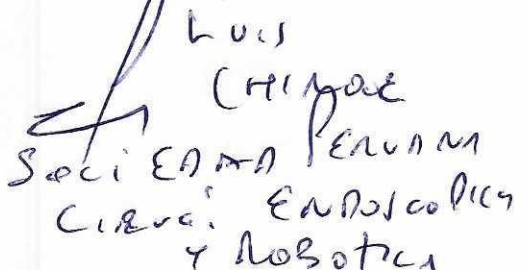 LUIS
SOCIEDAD PERUANA
CIRUGÍ. ENDOSCOPICA
Y ROBOTICA